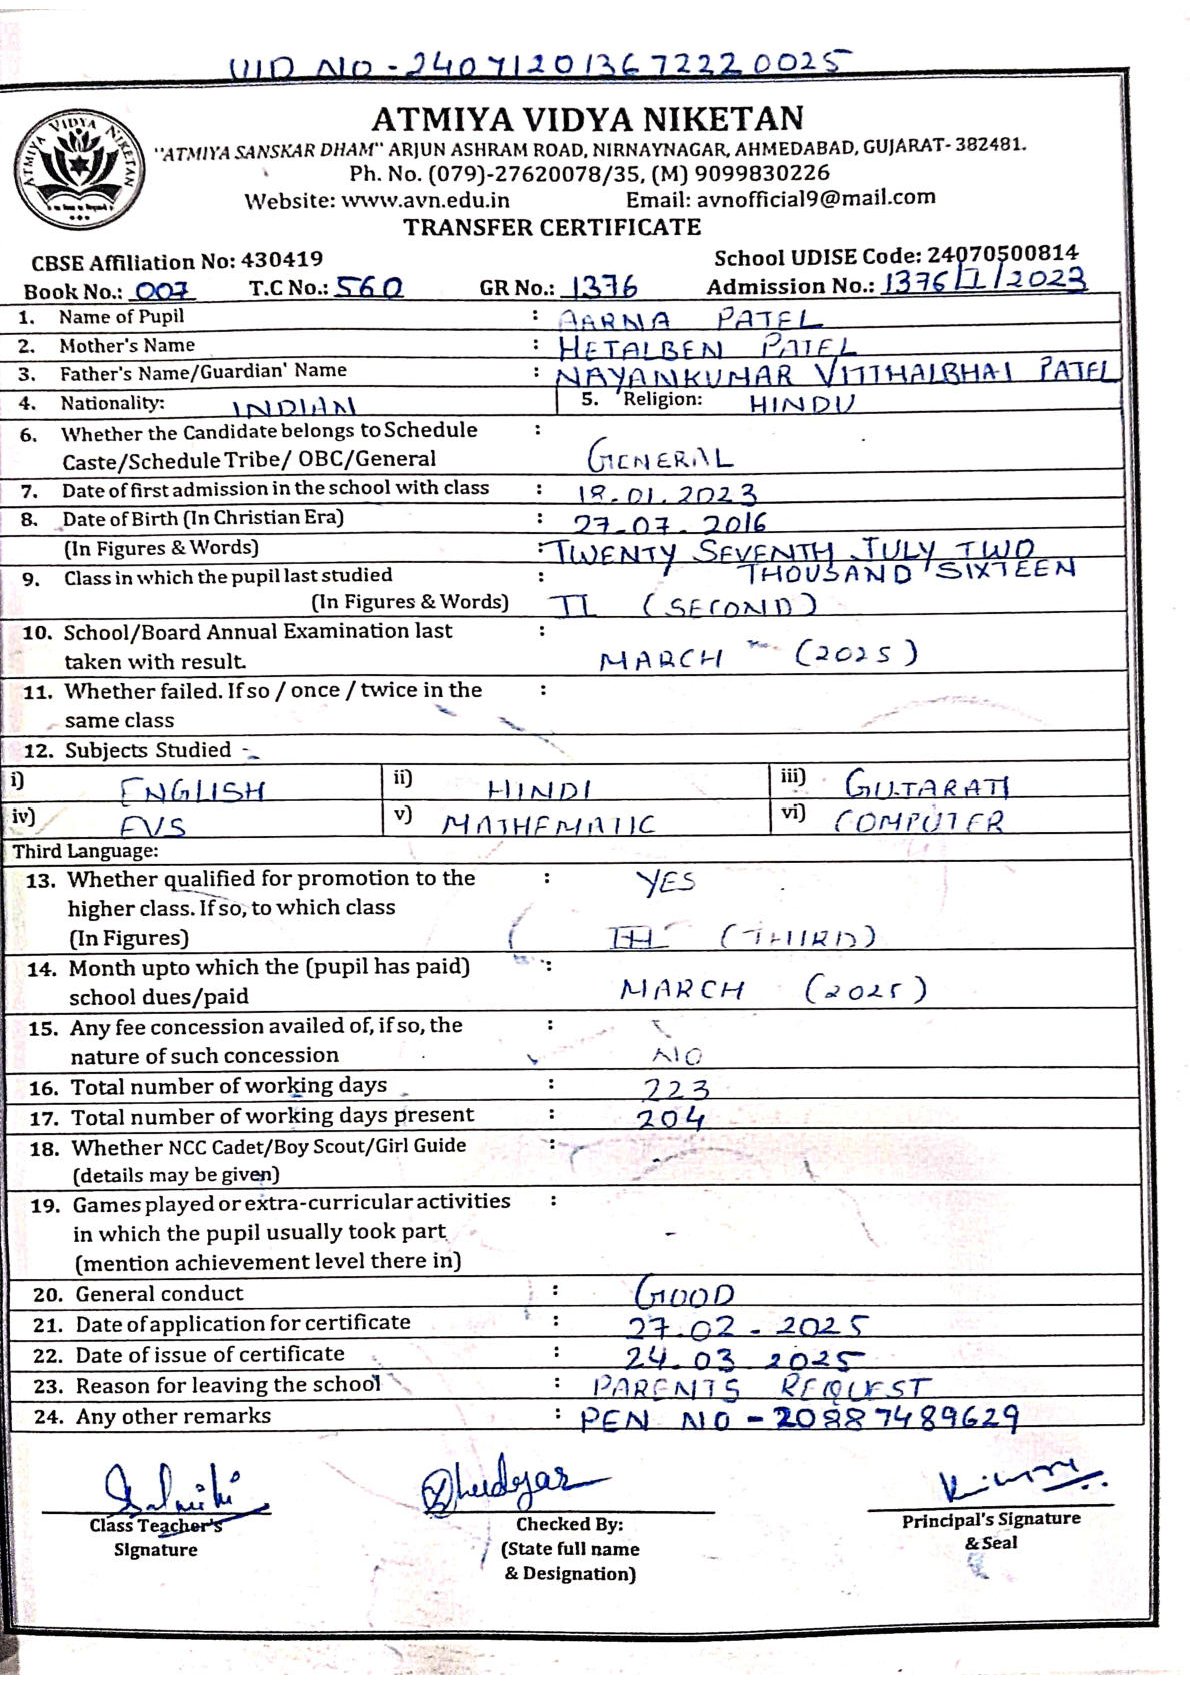 UID NO - 240712013672220025
ATMIYA VIDYA NIKETAN
"ATMIYA SANSKAR DHAM" ARJUN ASHRAM ROAD, NIRNAYNAGAR, AHMEDABAD, GUJARAT- 382481.
Ph. No. (079)-27620078/35, (M) 9099830226
Website: www.avn.edu.in Email: avnofficial9@mail.com
TRANSFER CERTIFICATE
CBSE Affiliation No: 430419 School UDISE Code: 24070500814
Book No.: 007 T.C No.: 560 GR No.: 1376 Admission No.: 1376/I/2023
1. Name of Pupil : AARNA PATEL
2. Mother's Name : HETALBEN PATEL
3. Father's Name/Guardian' Name : NAYANKUMAR VITTHALBHAI PATEL
4. Nationality: INDIAN 5. Religion: HINDU
6. Whether the Candidate belongs to Schedule :
Caste/Schedule Tribe/ OBC/General GENERAL
7. Date of first admission in the school with class : 18.01.2023
8. Date of Birth (In Christian Era) : 27-07-2016
(In Figures & Words) : TWENTY SEVENTH JULY TWO
9. Class in which the pupil last studied : THOUSAND SIXTEEN
(In Figures & Words) II (SECOND)
10. School/Board Annual Examination last :
taken with result. MARCH (2025)
11. Whether failed. If so / once / twice in the :
same class
12. Subjects Studied -
i) ENGLISH ii) HINDI iii) GUJARATI
iv) EVS v) MATHEMATIC vi) COMPUTER
Third Language:
13. Whether qualified for promotion to the : YES
higher class. If so, to which class
(In Figures) III (THIRD)
14. Month upto which the (pupil has paid) :
school dues/paid MARCH (2025)
15. Any fee concession availed of, if so, the :
nature of such concession NO
16. Total number of working days : 223
17. Total number of working days present : 204
18. Whether NCC Cadet/Boy Scout/Girl Guide : -
(details may be given)
19. Games played or extra-curricular activities :
in which the pupil usually took part -
(mention achievement level there in)
20. General conduct : GOOD
21. Date of application for certificate : 27.02-2025
22. Date of issue of certificate : 24.03 2025
23. Reason for leaving the school : PARENTS REQUEST
24. Any other remarks : PEN NO - 20887489629
Class Teacher's Checked By: Principal's Signature
Signature (State full name & Seal
& Designation)